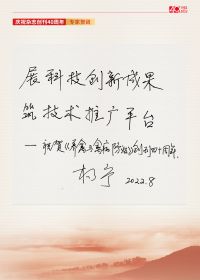 庆祝杂志创刊40周年 专家贺词
40
展科技创新成果
筑技术推广平台
—祝贺《养禽与禽病防治》创刊四十周年
2022.8